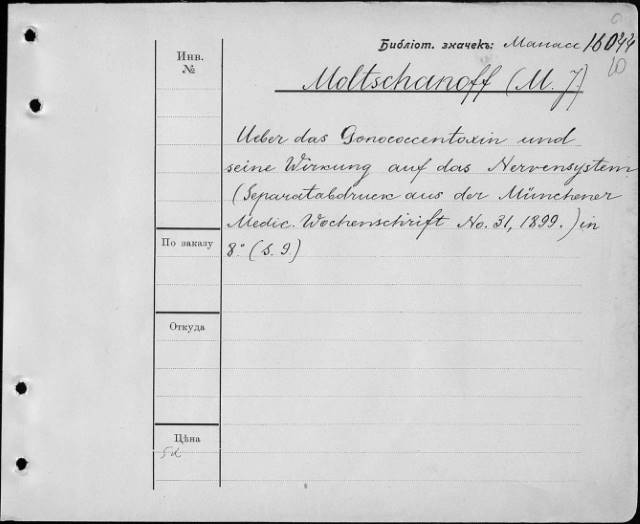 Библіот. значекъ: Манасс 16044
20
Moltschanoff (M. J)
Инв.
№
Ueber das Gonococcentoxin und
seine Wirkung auf das Nervensystem.
(Separatabdruck aus der Münchener
Medic. Wochenschrift No. 31, 1899.) in
8° (S. 9.)
По заказу
Откуда
Цѣна